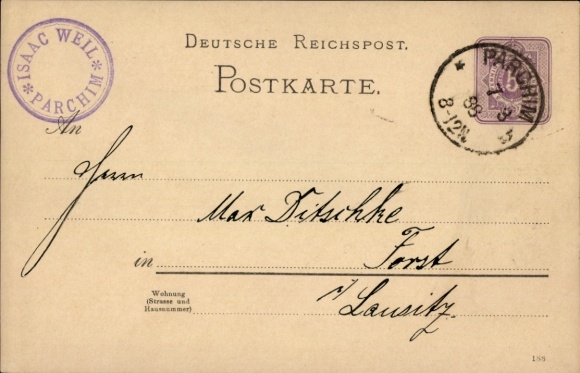 ISAAC WEIL
* PARCHIM *
DEUTSCHE REICHSPOST.
POSTKARTE.
* PARCHIM *
7 3
88
8-12N
5
An
Herrn
Max Ditschke
in Forst
Wohnung
(Strasse und
Hausnummer)
i/ Lausitz.
188